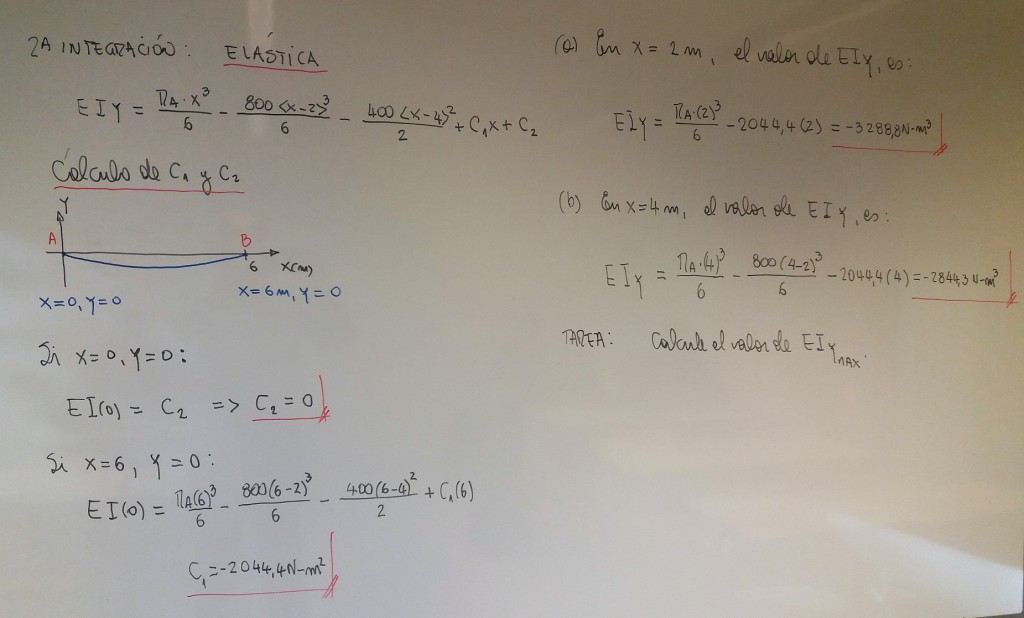 2A INTEGRACIÓN: ELÁSTICA
EIY = RA·x³/6 - 800<x-2>³/6 - 400<x-4>²/2 + C₁x + C₂
Cálculo de C₁ y C₂
Y
A B
6 X(m)
X=0, Y=0 X=6m, Y=0
Si x=0, Y=0:
EI(0) = C₂ => C₂ = 0
Si x=6, Y=0:
EI(0) = RA(6)³/6 - 800(6-2)³/6 - 400(6-4)²/2 + C₁(6)
C₁=-2044,4N-m²
(a) En x = 2m, el valor de EIY, es:
EIY = RA·(2)³/6 - 2044,4(2) = -3288,8N-m³
(b) En x=4m, el valor de EIY, es:
EIY = RA·(4)³/6 - 800(4-2)³/6 - 2044,4(4) = -2844,3 N-m³
TAREA: Calcule el valor de EIYMAX.